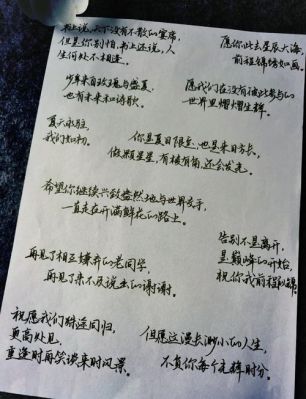 书上说，天下没有不散的宴席，
但是你别怕，书上还说，人
生何处不相逢。
愿你此去星辰大海，
前程锦绣如画。
少年来自玫瑰与盛夏
也有未来和诗歌。
愿我们在没有彼此参与的
世界里熠熠生辉。
夏天永驻，
我们如初。
你是夏日限定，也是来日方长，
做颗星星，有棱有角，还会发光。
希望你继续兴致盎然地与世界交手，
一直走在开满鲜花的路上。
告别不是离开，
是巅峰的开始，
祝你我前程似锦。
再见了相互嫌弃的老同学，
再见了来不及说出的谢谢。
祝愿我们殊途同归，
更高处见，
重逢时再笑谈来时风景。
但愿这漫长渺小的人生，
不负你每个光辉时分。